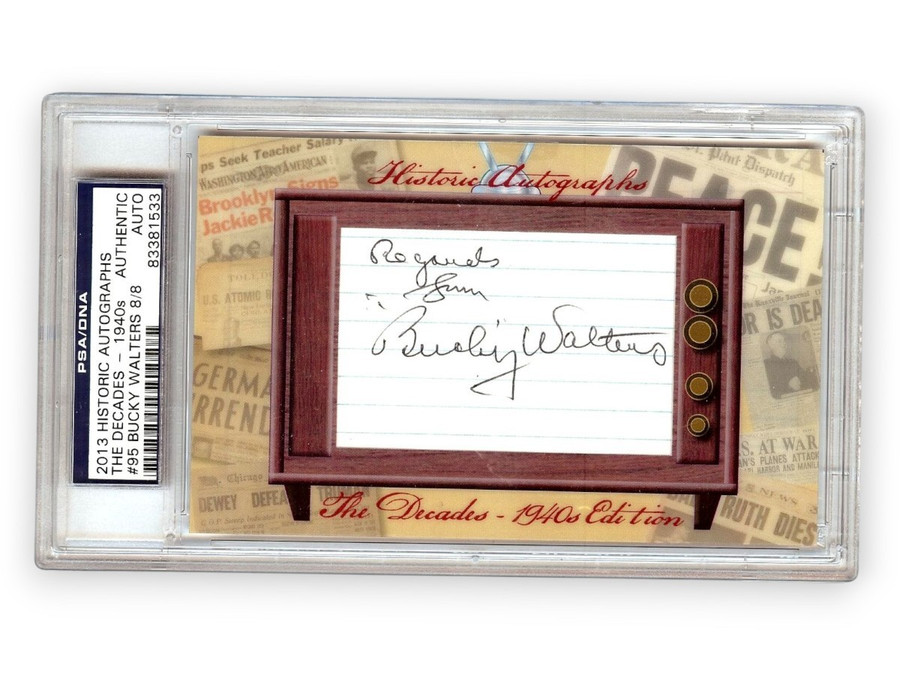 PSA/DNA
2013 HISTORIC AUTOGRAPHS
THE DECADES - 1940s AUTHENTIC
#95 BUCKY WALTERS 8/8 AUTO
83381533
Historic Autographs
ps Seek Teacher Salary
WASHINGTON AFRO AMERICAN
Brooklyn Signs
Jackie R
U.S. ATOMIC
GERMA
RREN
Chicago
DEWEY DEFEA TRUMAN
Regards
from
Bucky Walters
Dispatch
PEACE
R IS DEA
S. AT WAR
N'S PLANES ATTACK
HARBOR AND MANILA
RUTH DIES
The Decades - 1940s Edition